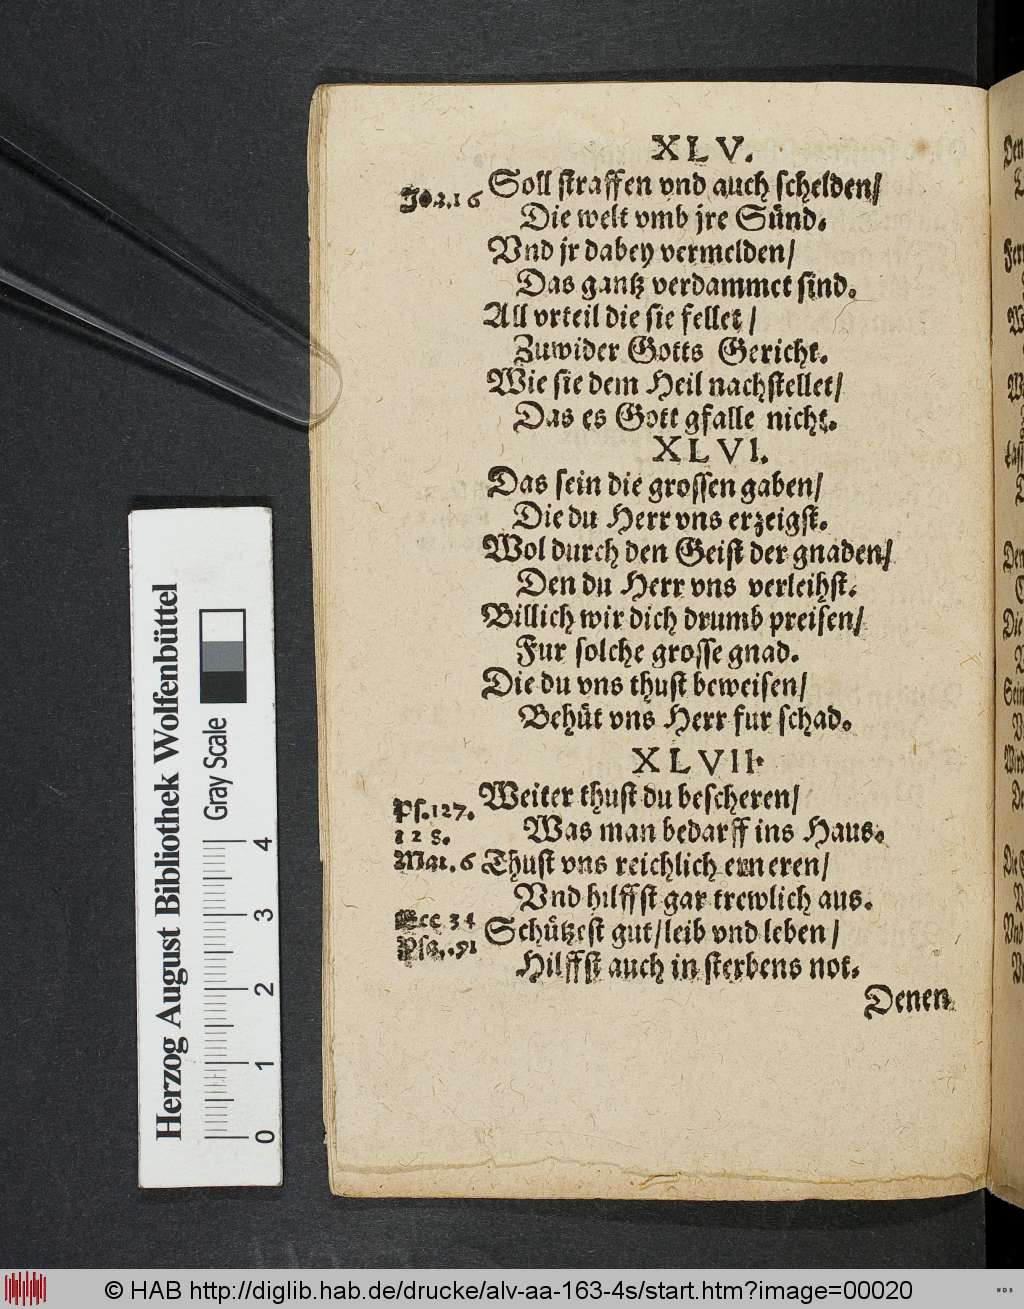 XLV.
Joa.16 Soll straffen vnd auch schelden/
Die welt vmb jre Sünd.
Vnd jr dabey vermelden/
Das gantz verdammet sind.
All vrteil die sie fellet/
Zuwider Gotts Gericht.
Wie sie dem Heil nachstellet/
Das es Gott gfalle nicht.
XLVI.
Das sein die grossen gaben/
Die du Herr vns erzeigst.
Wol durch den Geist der gnaden/
Den du Herr vns verleihst.
Billich wir dich drumb preisen/
Fur solche grosse gnad.
Die du vns thust beweisen/
Behüt vns Herr fur schad.
XLVII.
Weiter thust du bescheren/
Ps.127. Was man bedarff ins Haus.
128.
Mat.6 Thust vns reichlich erneren/
Vnd hilffst gar trewlich aus.
Ecc 34 Schützest gut/leib vnd leben/
Psa.91 Hilffst auch in sterbens not.
Denen
Herzog August Bibliothek Wolfenbüttel
Gray Scale
0 1 2 3 4
© HAB http://diglib.hab.de/drucke/alv-aa-163-4s/start.htm?image=00020